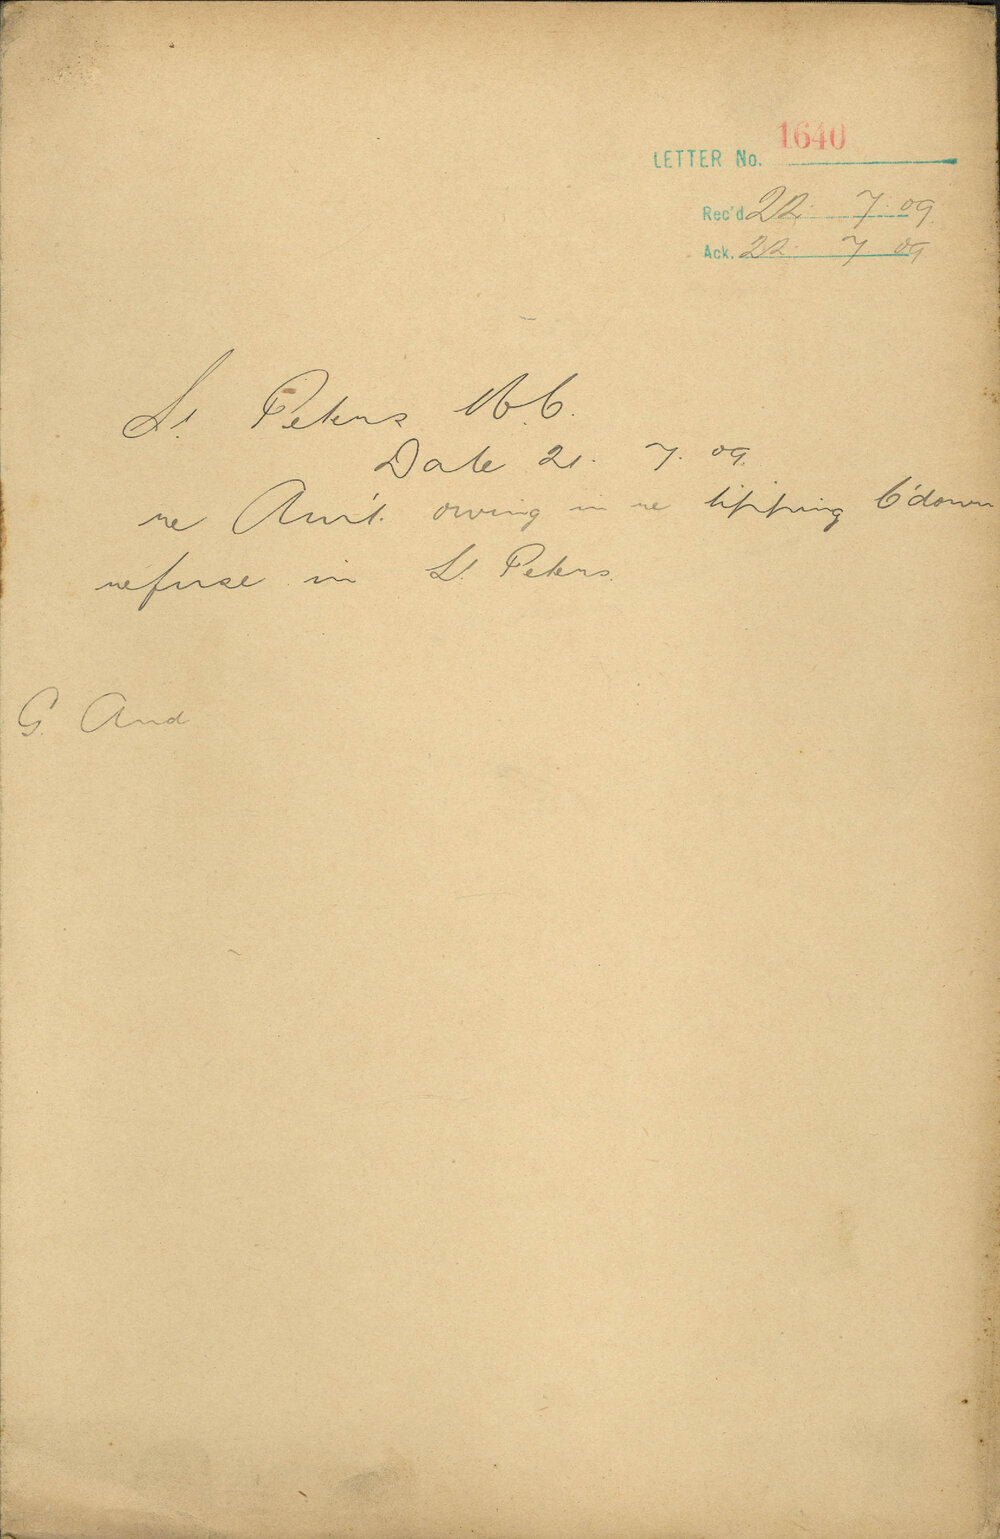 LETTER No. 1640
Rec'd 22. 7. 09.
Ack. 22. 7 09
St. Peters M.C.
Date 21. 7. 09.
re Am't. owing in re tipping C'down
refuse in St. Peters.
G. Aud